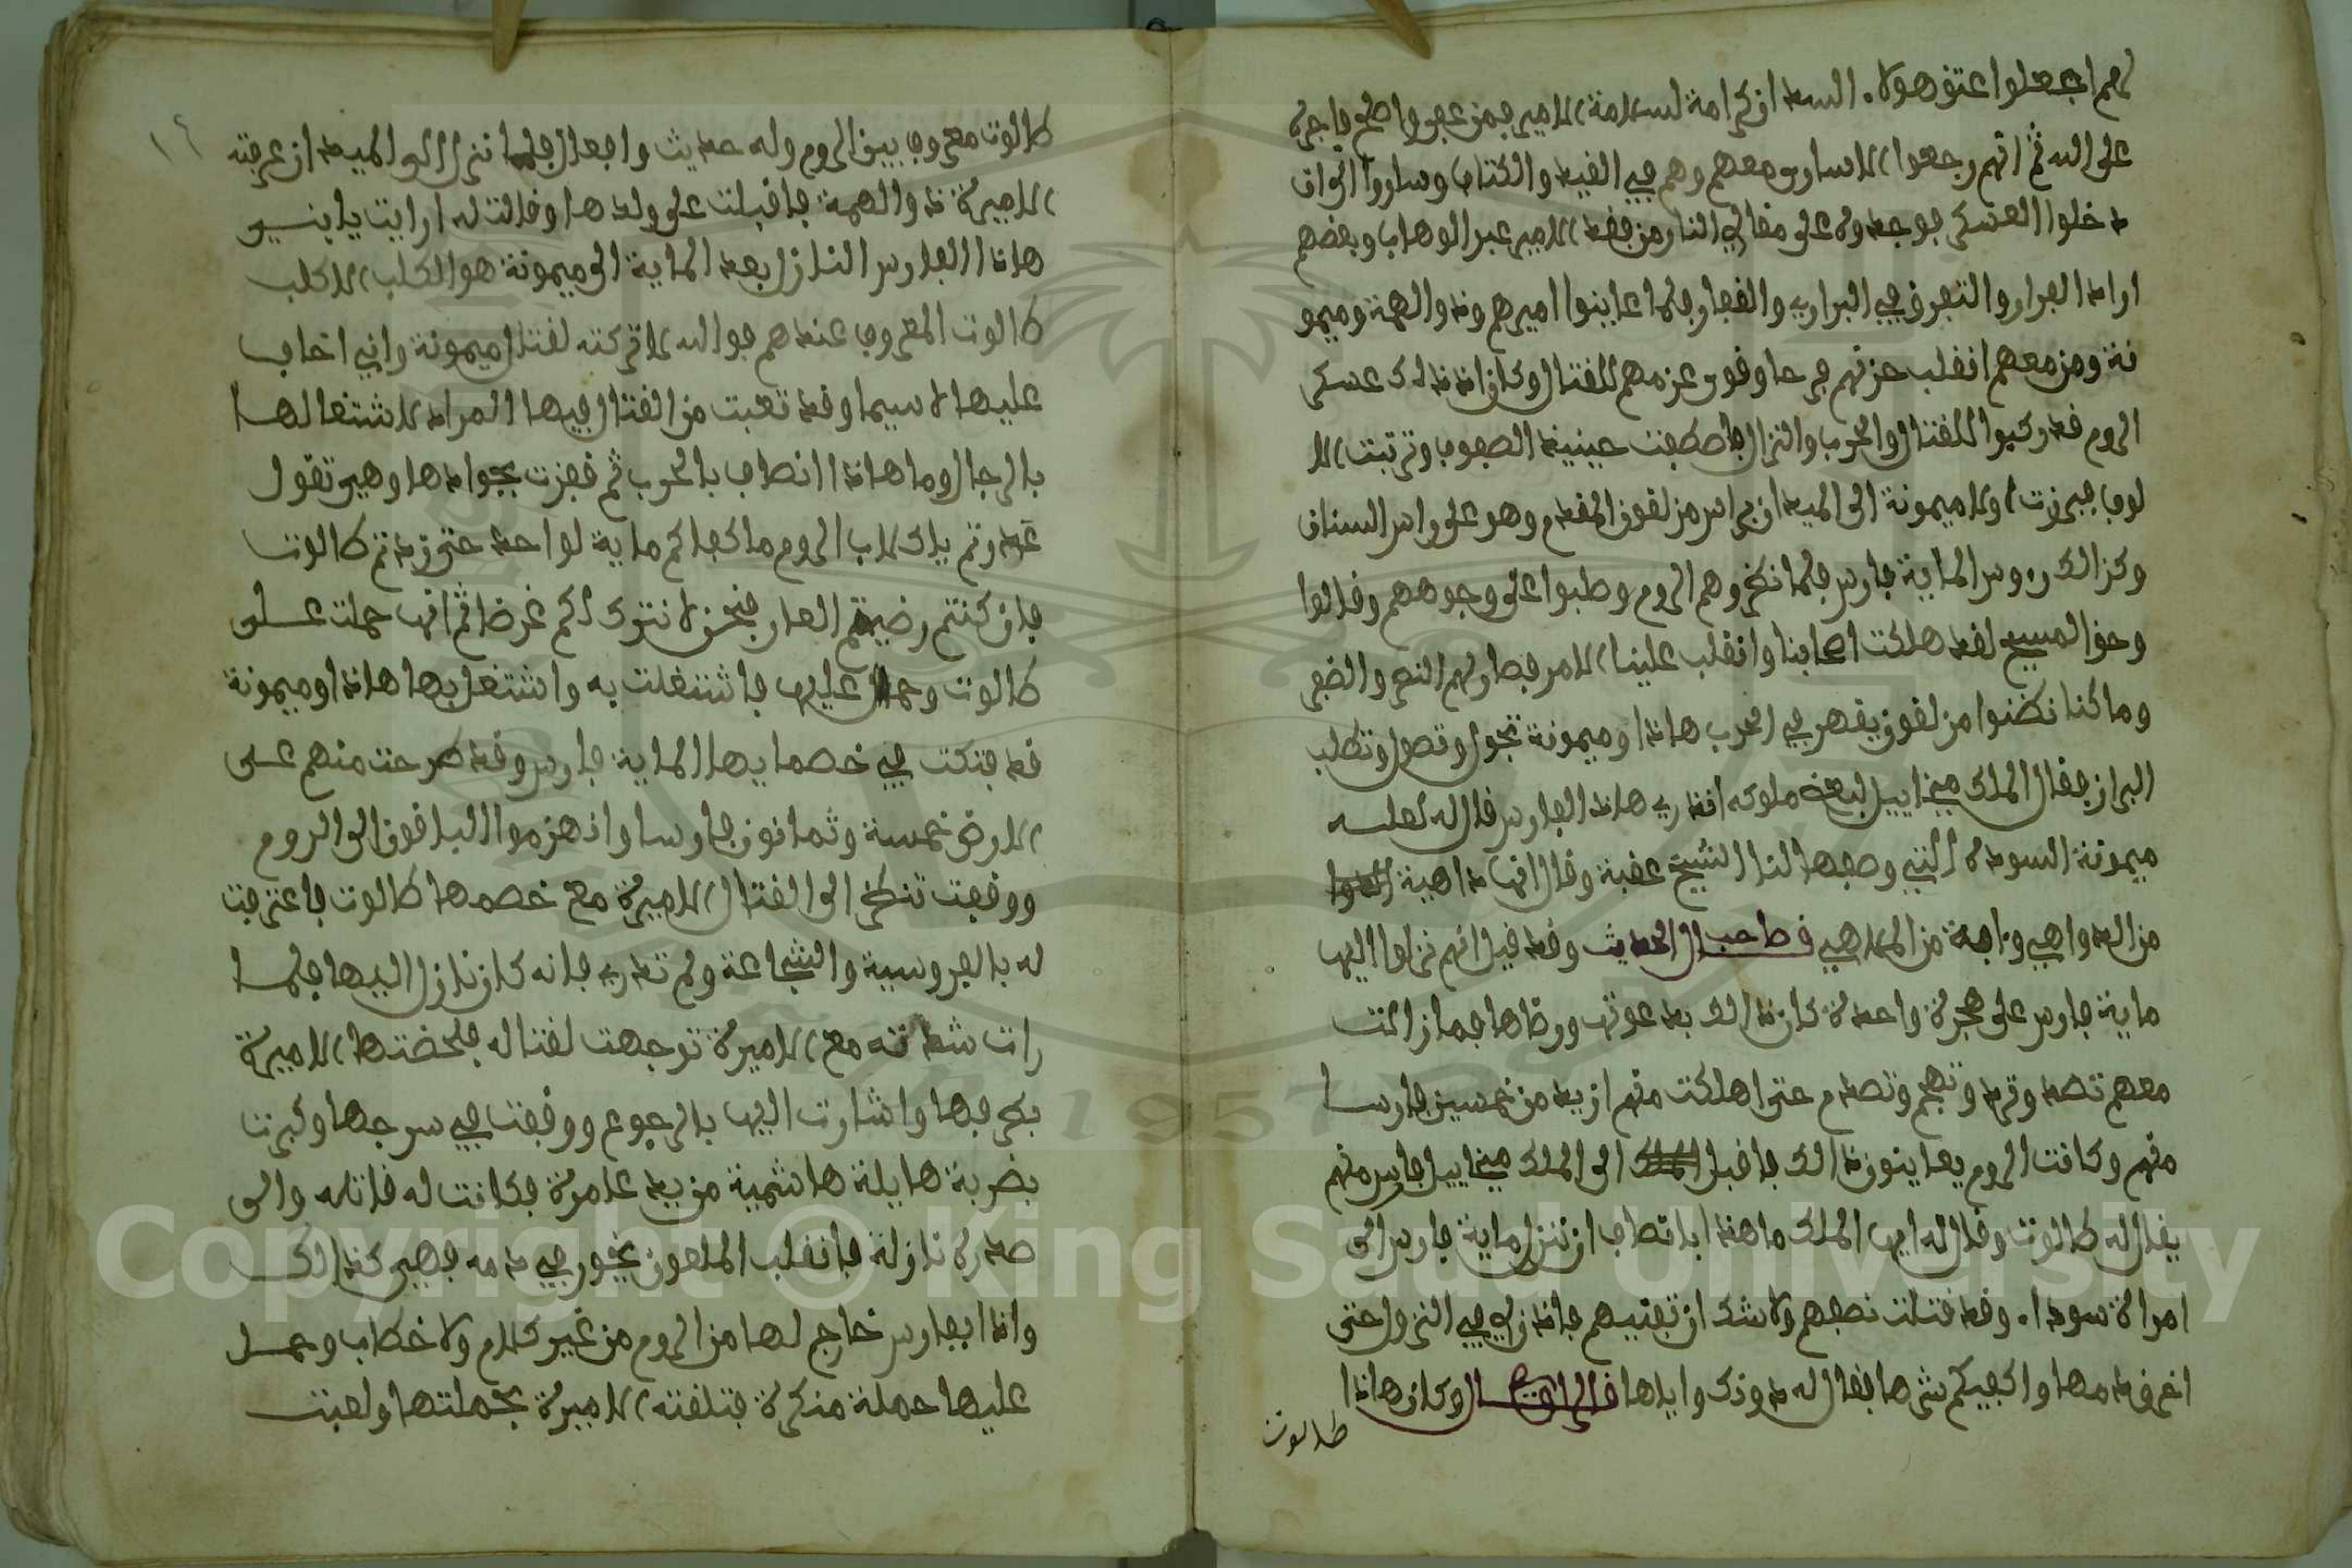 لهم اجعلوا عتق هولاء السد ازكرامة لسلامة الامير فمن عفى واصلح فاجره
على الله ثم انهم رجعوا الاسارى معهم وهم في القيد والكتاف وساروا الى ان
دخلوا العسكر فوجدوه على مقالي النار من فقد الامير عبد الوهاب وبعضهم
اراد الفرار والتفرق في البراري والقفار فلما عاينوا اميرهم وذو الهمة وميمو
نة ومن معهم انقلب حزنهم فرحا وقوى عزمهم للقتال وكان اذ ذلك عسكر
الروم قد ركبوا للقتال والحرب والنزال فاصطفت حينيذ الصفوف وترتبت الا
لوف فبرزت اولا ميمونة الى الميدان براس من لقون المقدم وهو على راس السنان
وكذالك روس الماية فارس فلما نظروهم الروم وطبوا على وجوههم وقالوا
وحق المسيح لقد هلكت اصحابنا وانقلب علينا الامر فصار لهم النصر والظفر
وما كنا نظنوا من لقون يقهر في الحرب هاذا وميمونة تجول وتصول وتطلب
البراز فقال الملك ميخاييل لبعض ملوكه اتدري هاذ الفارس قال له لعلـــه
ميمونة السودة التي وصفها لنا الشيخ عقبة وقال انها داهية
من الدواهي واجة من الملاهي قال صاحب الحديث وقد قيل انهم نزلوا اليها
ماية فارس على هجرة واحدة كان ذالك بدعوتها ورضاها فما زالت
معهم تصد وترد وتهجم وتصدم حتى اهلكت منهم ازيد من خمسين فارسا
منهم وكانت الروم يعاينون ذالك فاقبل الى الملك ميخاييل فارس منهم
يقال له طالوت وقال له ايها الملك ما هذا بانصاف ان تنزل ماية فارس الى
امراة سودا وقد قتلت نصفهم ولا شك ان تفنيهم فاذن لي في النزول حتى
اخرق دمها واكفيكم شرها فقال له دونك واياها قال الراوي وكان هاذا
طالوت
طالوت معروف بين الروم وله حديث وافعال فلما نزل الى الميدان عرفته
الاميرة ذو الهمة فاقبلت على ولدها وقالت له ارايت يا بنـــي
هاذا الفارس النازل بعد الماية الى ميمونة هو الكلب الاكلب
طالوت المعروف عندهم فوالله لا تركته لقتال ميمونة واني اخاف
عليها لا سيما وقد تعبت من القتال فيها المراد لاشتغالهـا
بالرجال وما هاذا انصاف بالحرب ثم قفزت بجوادها وهي تقول
غدرتم يا كلاب الروم ما كفاكم ماية لواحد حتى زدتم طالوت
فان كنتم رضيتم العار فنحن لا نترك لكم غرضا ثم انها حملت عـــلى
طالوت وحمل عليها فاشتغلت به واشتغل بها هاذا وميمونة
قد فتكت في خصمايها الماية فارس وقد طرحت منهم عـــلى
الارض خمسة وثمانون فارسا وانهزموا الباقون الى الروم
ووقفت تنظر الى القتال الاميرة مع خصمها طالوت فاعترفت
له بالفروسية والشجاعة ولم تدر به فانه كان نازل اليها فلمـا
رات شدته مع الاميرة توجهت لقتاله فلحضتها الاميرة
بطرفها واشارت اليها بالرجوع ووقفت في سرجها وكبرت
بضربة هايلة هاشمية من يد عامرة فكانت له قاتله والى
صدره نازلة فانقلب الملعون يخور في دمه فبهي كذالك
واذا بفارس خارج لها من الروم من غير كلام ولا خطاب وحمـــل
عليها حملة منكرة فتلقته الاميرة بحملتها ولعبت
Copyright © King Saud University
1957